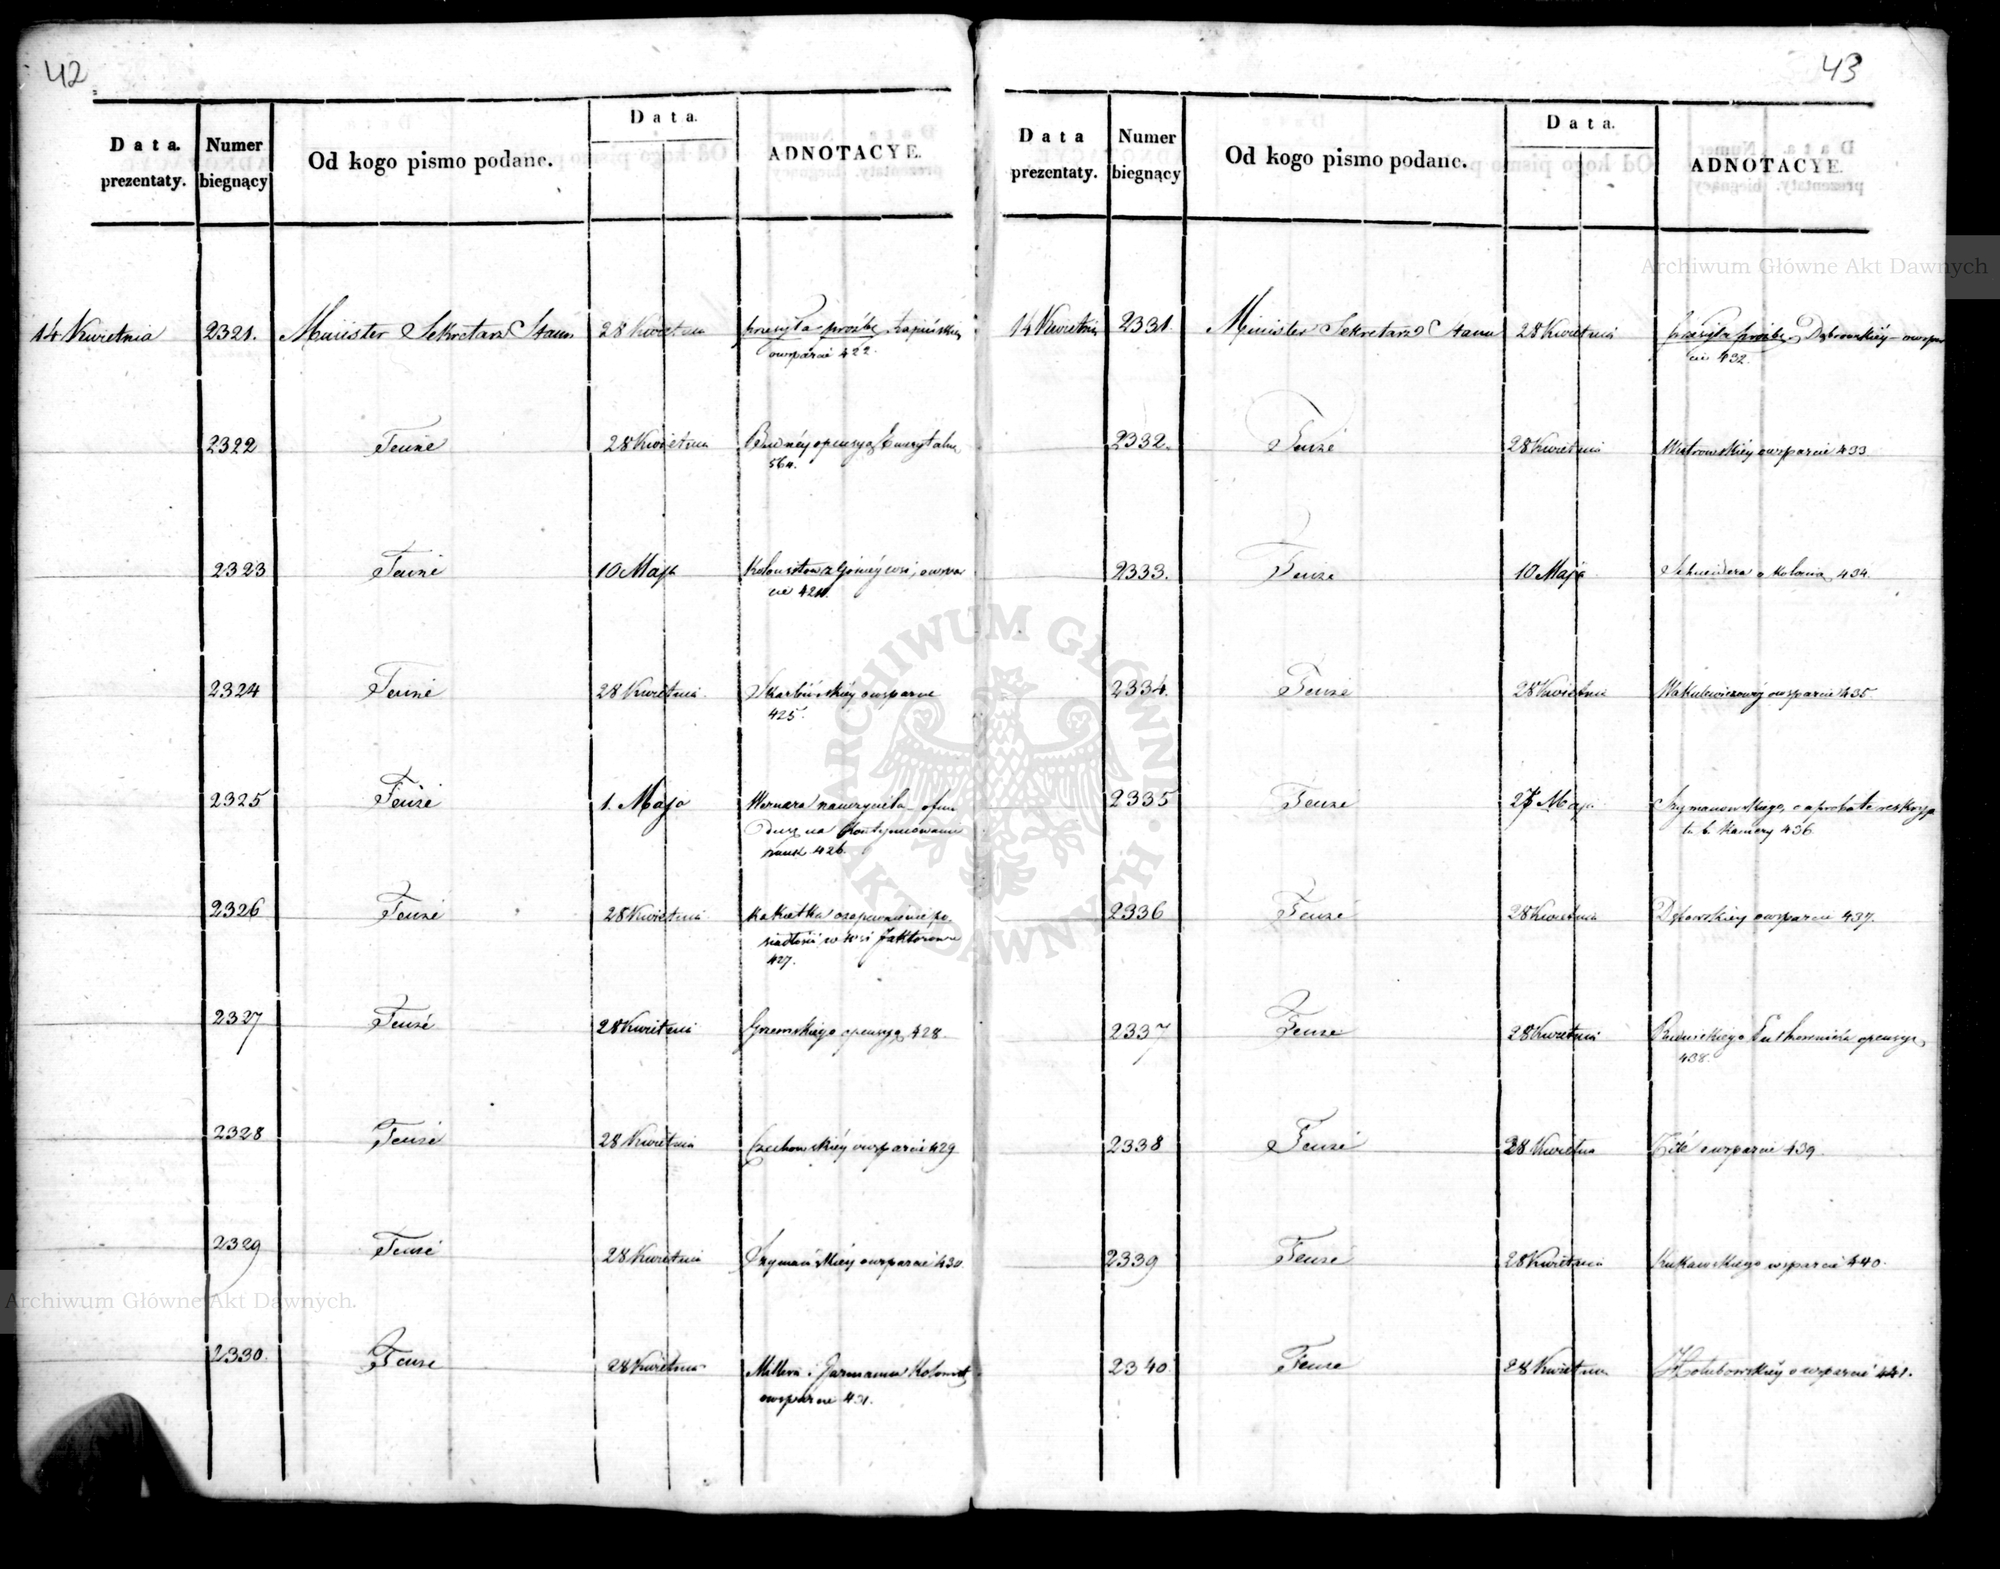 42
Data. prezentaty.
Numer biegnący
Od kogo pismo podane.
Data.
ADNOTACYE.
14 Kwietnia 2321. Minister Sekretarz Stanu 28 Kwietnia przesyła prośbę
o wsparcie 422.
2322 Tenże 28 Kwietnia o pensyą Emerytalną
564.
2323 Tenże 10 Maja Kolonistów z
424.
2324 Tenże 28 Kwietnia Skarbińskiéy o wsparcie
425.
2325 Tenże 1. Maja Wernera nauczyciela o fun
dusz na kontynuowanie
nauk 426.
2326 Tenże 28 Kwietnia
w wsi Faktorowa
427.
2327 Tenże 28 Kwietnia Grzemskiego o pensyą 428.
2328 Tenże 28 Kwietnia Czechowskiéy o wsparcie 429
2329 Tenże 28 Kwietnia Szymańskiéy o wsparcie 430.
2330. Tenże 28 Kwietnia Millera i Germanna Kolonist
o wsparcie 431.
43
Data prezentaty.
Numer biegnący
Od kogo pismo podane.
Data.
ADNOTACYE.
14 Kwietnia 2331. Minister Sekretarz Stanu 28 Kwietnia przesyła prośbę Dąbrowskiéy o wspar
cie 432.
2332. Tenże 28 Kwietnia o wsparcie 433
2333. Tenże 10 Maja Schneidera o Kolonią 434.
2334. Tenże 28 Kwietnia Wakulewiczowéy o wsparcie 435.
2335 Tenże Maja Szymanowskiego, o aprobatę reskryp
tu b. Kamery 436.
2336 Tenże 28 Kwietnia o wsparcie 437.
2337 Tenże 28 Kwietnia o pensyą
438.
2338 Tenże 28 Kwietnia o wsparcie 439.
2339 Tenże 28 Kwietnia Kukawskiego wsparcie 440.
2340. Tenże 28 Kwietnia Hołubowskiéy o wsparcie 441.
Archiwum Główne Akt Dawnych
ARCHIWUM GŁÓWNE AKT DAWNYCH
Archiwum Główne Akt Dawnych.